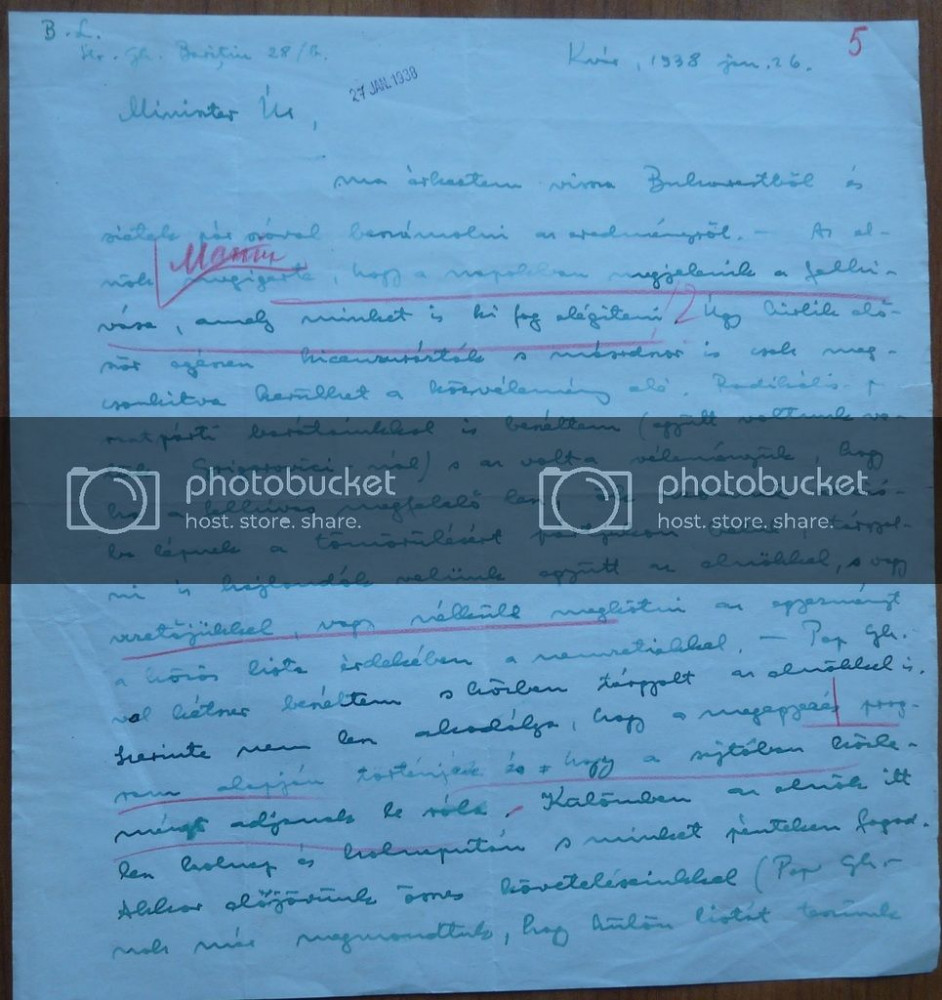 B. L.
Str. Gh. Barițiu 28/B.
Kvár, 1938 jan. 26.
5
27 JAN. 1938
Minister Úr,
ma érkeztem vissza Bukarestből és
sietek pár szóval beszámolni az eredményről. — Az el-
Maniu
nök megigérte, hogy a napokban megjelenik a felhi-
vása, amely minket is ki fog elégíteni. Úgy hírlik elő-
ször egészen kicenzurázták s másodszor is csak meg-
csonkitva kerülhet a közvélemény elé. Radikális-
párti barátainkkal is beszéltem (együtt voltunk ve-
Grigorovici-nál) s az volt a véleményük, hogy
ha a felhívás megfelelő lesz, ők
ba lépnek a tömörülésért tárgyal-
ni is hajlandók velünk együtt az elnökkel, s vagy
vezetőjükkel, vagy nélküle megkötni az egyezményt
a közös lista érdekében a nemzetiekkel. — Pop Gh.-
val kétszer beszéltem s közben tárgyalt az elnökkel is.
Szerinte nem lesz akadálya, hogy a megegyezés prog-
ram alapján történjék és hogy a sajtóban közle-
ményt adjanak ki róla. Különben az elnök itt
lesz holnap és holnapután s minket pénteken fogad.
Akkor előjövünk összes követeléseinkkel (Pop Gh.-
nak már megmondtuk, hogy külön listát teszünk
photobucket
host. store. share.
photobucket
host. store. share.